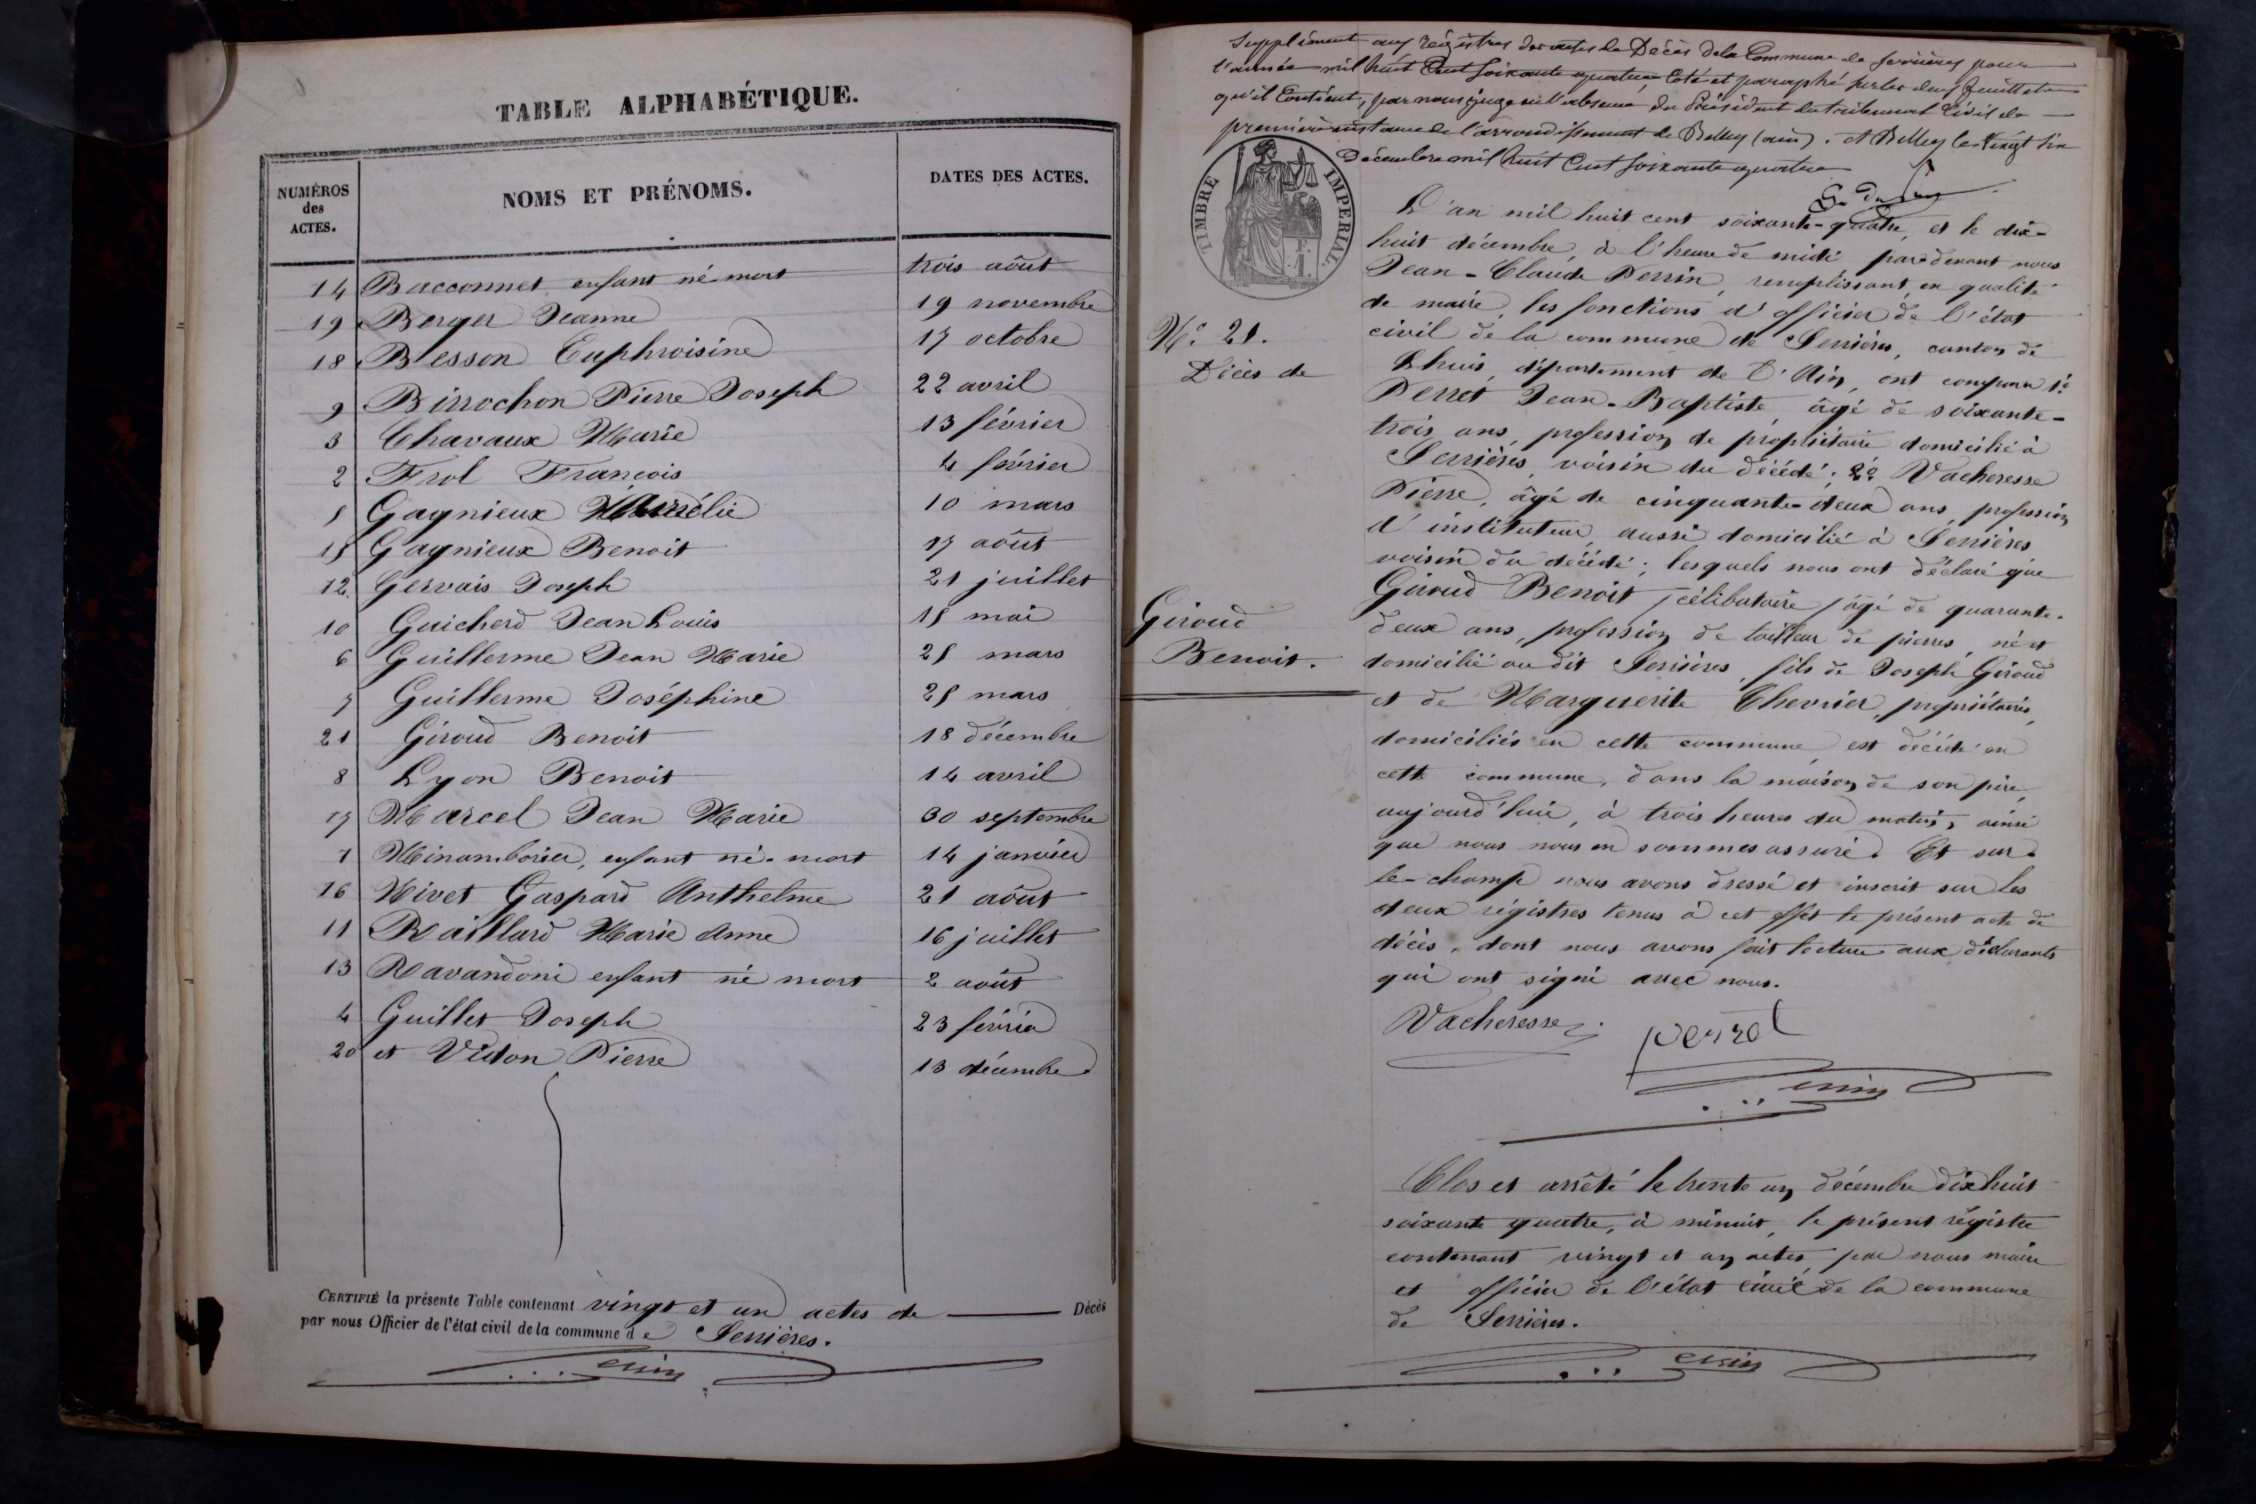 TABLE ALPHABÉTIQUE.
NUMÉROS des ACTES. NOMS ET PRÉNOMS. DATES DES ACTES.
14 Bacconnet enfant né mort trois août
19 Berger Jeanne 19 novembre
18 Besson Euphroisine 17 octobre
9 Birrochon Pierre Joseph 22 avril
3 Chavaux Marie 13 février
2 Frol François 4 février
5 Gagnieux Mamélie 10 mars
15 Gagnieux Benoit 17 août
12 Gervais Joseph 21 juillet
10 Guicherd Jean Louis 15 mai
6 Guillerme Jean Marie 25 mars
7 Guillerme Joséphine 25 mars
21 Giroud Benoit 18 décembre
8 Lyon Benoit 14 avril
17 Marcel Jean Marie 30 septembre
1 enfant né-mort 14 janvier
16 Nivet Gaspard Anthelme 21 août
11 Raillard Marie Anne 16 juillet
13 Ravandoni enfant né mort 2 août
4 Guillet Joseph 23 février
20 et Vidon Pierre 13 décembre
CERTIFIÉ la présente Table contenant vingt et un actes de Décès
par nous Officier de l'état civil de la commune de Serrières.
Supplément aux régistres des actes de Décès de la Commune de Serrières pour
l'année mil huit Cent soixante quatre, Coté et paraphé sur les deux feuillets
qu'il Contient, par nous juge en l'absence du Président du tribunal Civil de
première instance de l'arrondissement de Belley (ain). A Belley le Vingt six
Décembre mil huit Cent soixante quatre
TIMBRE IMPERIAL.
L'an mil huit cent soixante-quatre, et le dix-
huit décembre à l'heure de midi par devant nous
Jean-Claude Perrin, remplissant en qualité
de maire, les fonctions d'officier de l'état
civil de la commune de Serrières, canton de
Lhuis, département de l'Ain, ont comparu 1º
Perret Jean-Baptiste, âgé de soixante-
trois ans, profession de propriétaire domicilié à
Serrières, voisin du décédé; 2º Vacheresse
Pierre, âgé de cinquante-deux ans, profession
d'instituteur, aussi domicilié à Serrières
voisin du décédé; lesquels nous ont déclaré que
Giroud Benoit, célibataire, âgé de quarante-
deux ans, profession de tailleur de pierres, né et
domicilié au dit Serrières, fils de Joseph Giroud
et de Marguerite Chevrier, propriétaires,
domiciliés en cette commune, est décédé en
cette commune, dans la maison de son père,
aujourd'hui, à trois heures du matin, ainsi
que nous nous en sommes assuré. Et sur-
le-champ nous avons dressé et inscrit sur les
deux régistres tenus à cet effet le présent acte de
décès, dont nous avons fait lecture aux déclarants
qui ont signé avec nous.
Nº 21.
Décès de
Giroud
Benoit.
Vacheresse perret
Perrin
Clos et arrêté le trente un décembre dix huit
soixante quatre, à minuit, le présent régistre
contenant vingt et un actes, par nous maire
et officier de l'état civil de la commune
de Serrières.